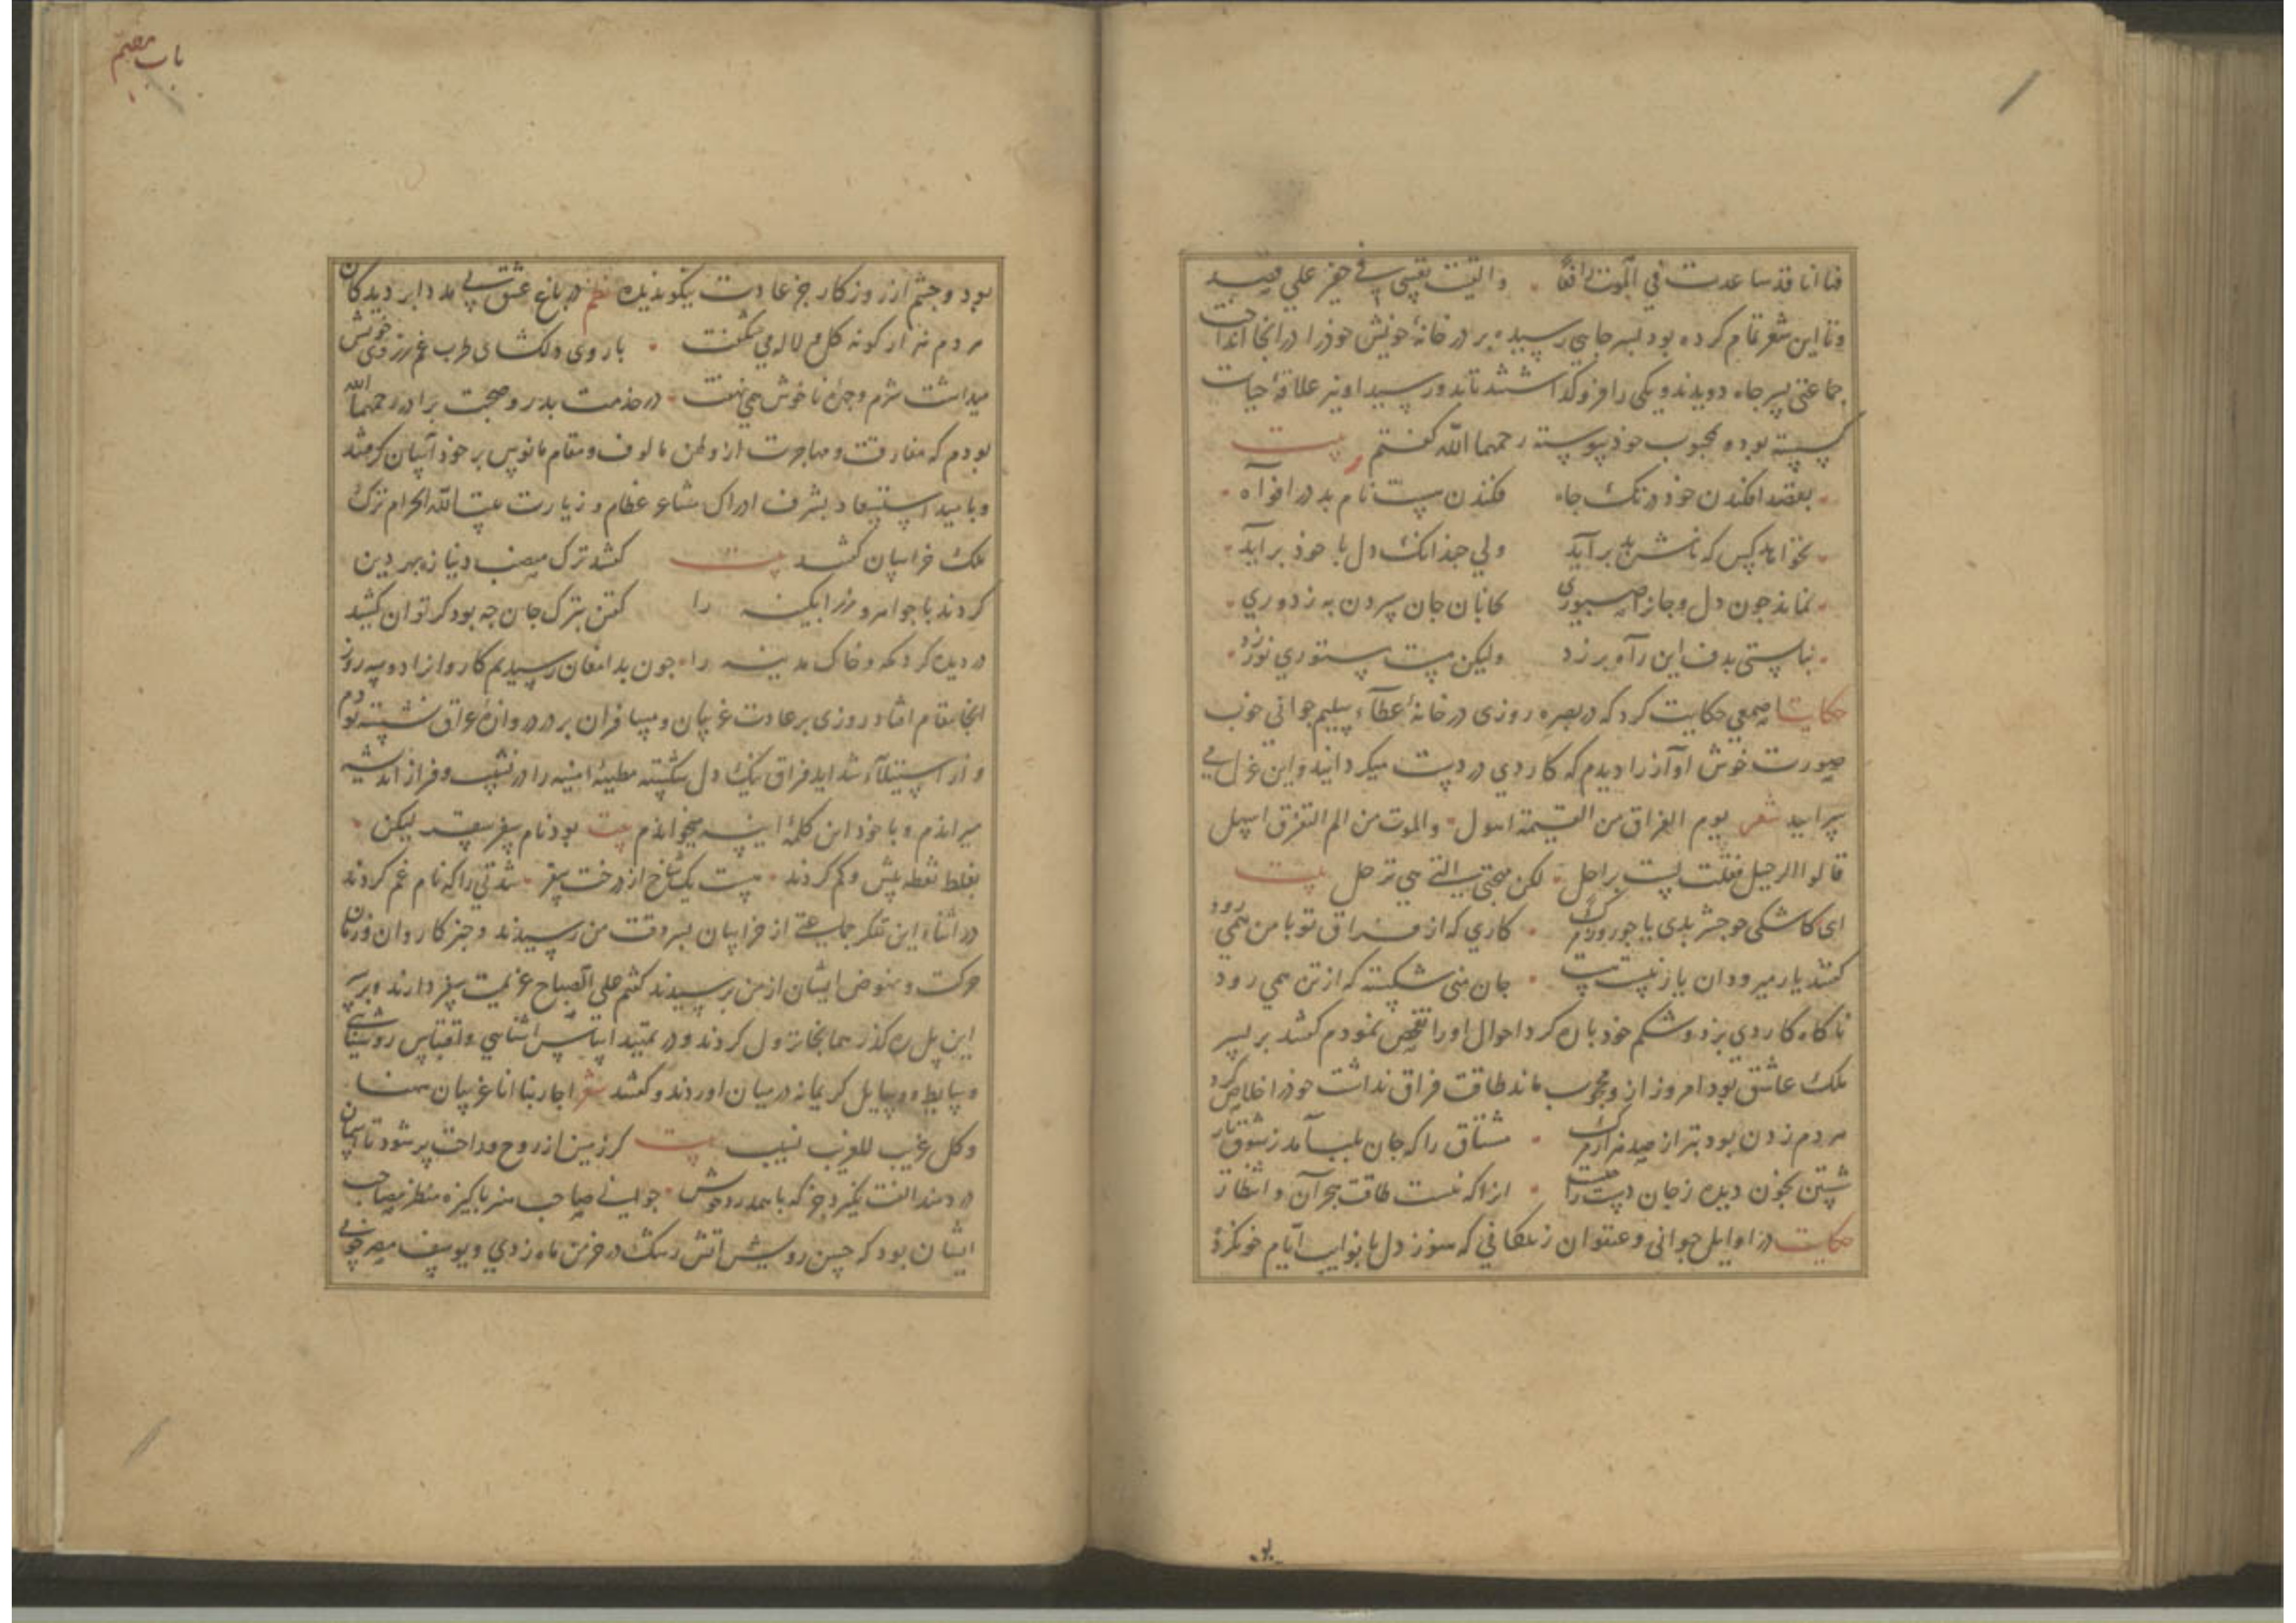 فما انا قد ساعدت في الموت
وتا این شعر تمام کرده بود بسر جاهی رسیده بر در خانهٔ خویش خوذرا در انجا انداخت
جماعتی بسر جاه دویدند و یکی را فرو کذاشتند تا بدو رسید او نیز علاقهٔ حیات
کسسته بود و بمحبوب خوذ پیوسته رحمهما الله کفتم بیت
بقصد افکندن خوذ در تک جاه فکندن نام بد در افواه
نخواهد کس که نامش بد برآید ولی جندانک دل با خوذ برآید
نماند جون دل و جانرا صبوری جان سپردن به ز دوری
ولیکن نیست مستوری
حکایت اصمعی حکایت کرد که در بصره روزی در خانهٔ عطاء سلیم جوانی خوب
صورت خوش آواز را دیدم که کاردی در دست میکردانید و این غزل می
سرایید شعر یوم الفراق من القیمة اهول والموت من الم التفرق اسهل
قالوا الرحیل فقلت لست براحل لکن مهجتی التی هی ترحل بیت
ای کاشکی بدی یا جور و رکم کاری که از فراق تو با من همی رود
کفتند یار میرود ان یار نیست جان منی شکسته که از تن همی رود
ناکاه کاردی بزد و شکم خوذ باره کرد احوال او را تفحص نمودم کفتند بر پسر
ملک عاشق بود امروز از و محجوب ماند طاقت فراق نداشت خوذرا خلاص کرد
مردم زدن بود بتر از صد هزار مرک مشتاق را که جان بلب آمد ز شوق یار
شستن بخون دیده ز جان دست انرا که نیست طاقت هجران و انتظار
حکایت در اوایل جوانی و عنفوان زندکانی که هنوز دل با نوایب ایام خو نکرده
بو
باب
بود و جشم از روزکار جز عادت نیکو ندیده نظم در باغ عشق بی مدد ابر دیدکان
هر دم هزار کونه کل و لاله می شکفت با روی دلکشای طرب غم ز روی خویش
میداشت شرم و جهرهٔ ناخوش همی نهفت در خدمت بدر و صحبت برادر رحمهما الله
بودم که مفارقت و مهاجرت از وطن مالوف و مقام مانوس بر خوذ آسان کرفتند
و بامید استسعاد بشرف ادراک مشاعر عظام و زیارت بیت الله الحرام ترک
ملک خراسان کفتند بیت کفتند ترک منصب دنیا ز بهر دین
کردند با جواهر و زر ابکینه را کفتن بترک جان جه بود کر توان کشید
در دیده کرد مکه و خاک مدینه را جون بدامغان رسیدیم کاروانرا دو سه روز
انجا مقام افتاد روزی بر عادت غریبان و مسافران بر در دروازهٔ عراق نشسته بودم
و از استیلاء شداید فراق تنک دل شکسته مطیهٔ امنیه را در نشیب و فراز اندیشه
میراندم و با خود این کلمهٔ میخواندم بیت بود نام سفر سقر لیکن
بغلط نقطه بیش و کم کردند نیست یک شاخ از درخت سقر شدتی را که نام غم کردند
در اثناء این تفکر جماعتی از خراسان بسر وقت من رسیدند و خبر کاروان و زمان
حرکت و نهوض ایشان از من پرسیدند کفتم علی الصباح عزیمت سفر دارند و بر سر
این پل ره کذر همانجا نزول کردند و در تمهید اساس اشنایی و اقتباس روشنایی
وسایط و وسایل کریمانه در میان اوردند و کفتند شعر اجارتنا انا غریبان ههنا
وکل غریب للغریب نسیب بیت کر زمین از روح و راحت پر شود تا آسمان
دردمند الفت نکیرد جز که با همدرد خویش جوانی صاحب هنر پاکیزه منظر مصاحب
ایشان بود که حسن رویش اتش رشک در خرمن ماه زدی و یوسف مصر خوبی